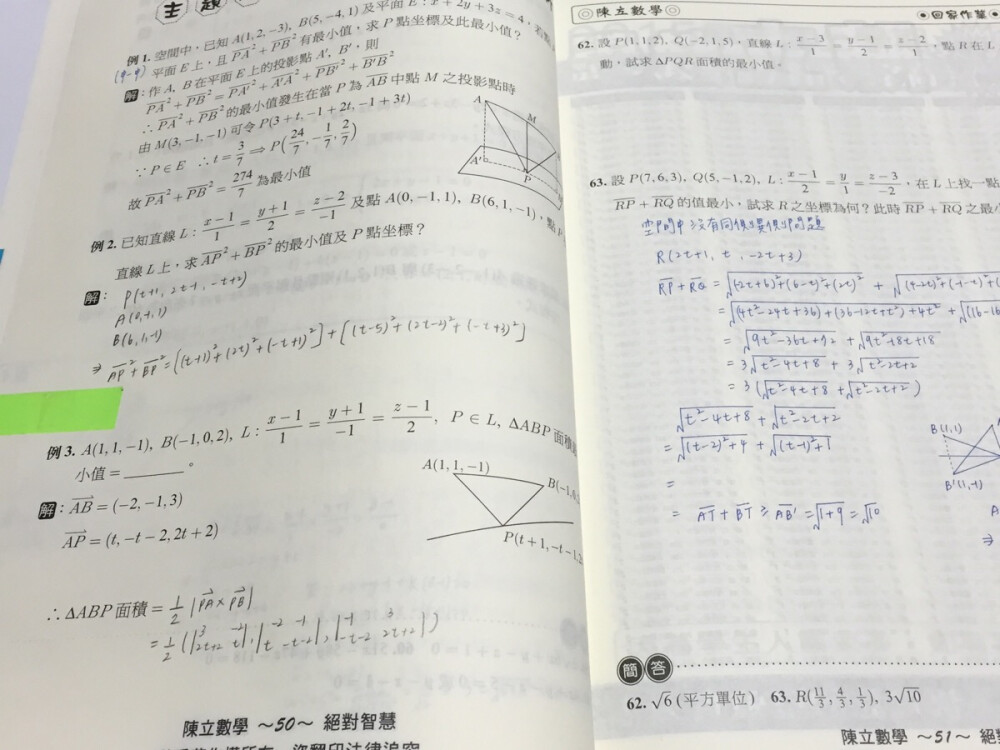 主 題
例 1. 空間中，已知 A(1, 2, −3), B(5, −4, 1) 及平面 E : x + 2y + 3z = 4，若點
平面 E 上，且 PA² + PB² 有最小值，求 P 點坐標及此最小值？
解：作 A, B 在平面 E 上的投影點 A′, B′，則
PA² + PB² = PA′² + A′A² + PB′² + B′B²
∴ PA² + PB² 的最小值發生在當 P 為 AB 中點 M 之投影點時
由 M(3, −1, −1) 可令 P(3 + t, −1 + 2t, −1 + 3t)
∵ P ∈ E ∴ t = 3/7 ⟹ P(24/7, −1/7, 2/7)
故 PA² + PB² = 274/7 為最小值
A
M
A′
P
例 2. 已知直線 L : (x−1)/1 = (y+1)/2 = (z−2)/−1 及點 A(0, −1, 1), B(6, 1, −1)，點
直線 L 上，求 AP² + BP² 的最小值及 P 點坐標？
解：P(t+1, 2t-1, -t+2)
A(0,-1,1)
B(6,1,-1)
⇒ AP² + BP² = [(t+1)²+(2t)²+(-t+1)²] + [(t-5)²+(2t-2)²+(-t+3)²]
例 3. A(1, 1, −1), B(−1, 0, 2), L : (x−1)/1 = (y+1)/−1 = (z−1)/2, P ∈ L, ΔABP 面積
小值 = ______。
解：AB = (−2, −1, 3)
AP = (t, −t − 2, 2t + 2)
A(1, 1, −1)
B(−1, 0,
P(t + 1, −t − 1,
∴ ΔABP 面積 = 1/2 |PA × PB|
陳立數學 ～50～ 絕對智慧
◎陳立數學◎
回家作業
62. 設 P(1, 1, 2), Q(−2, 1, 5)，直線 L : (x−3)/1 = (y−1)/2 = (z−2)/1，點 R 在 L
動，試求 ΔPQR 面積的最小值。
63. 設 P(7, 6, 3), Q(5, −1, 2), L : (x−1)/2 = y/1 = (z−3)/−2，在 L 上找一點
RP + RQ 的值最小，試求 R 之坐標為何？此時 RP + RQ 之最小
R(2t+1, t, -2t+3)
= √(9t²-36t+72) + √(9t²-18t+18)
= 3√(t²-4t+8) + 3√(t²-2t+2)
= 3(√(t²-4t+8) + √(t²-2t+2))
√(t²-4t+8) + √(t²-2t+2)
= √((t-2)²+4) + √((t-1)²+1)
=
= AT + BT ≥ AB' = √(1+9) = √10
B(1,1)
B'(1,-1)
簡 答
62. √6 (平方單位) 63. R(11/3, 4/3, 1/3), 3√10
陳立數學 ～51～